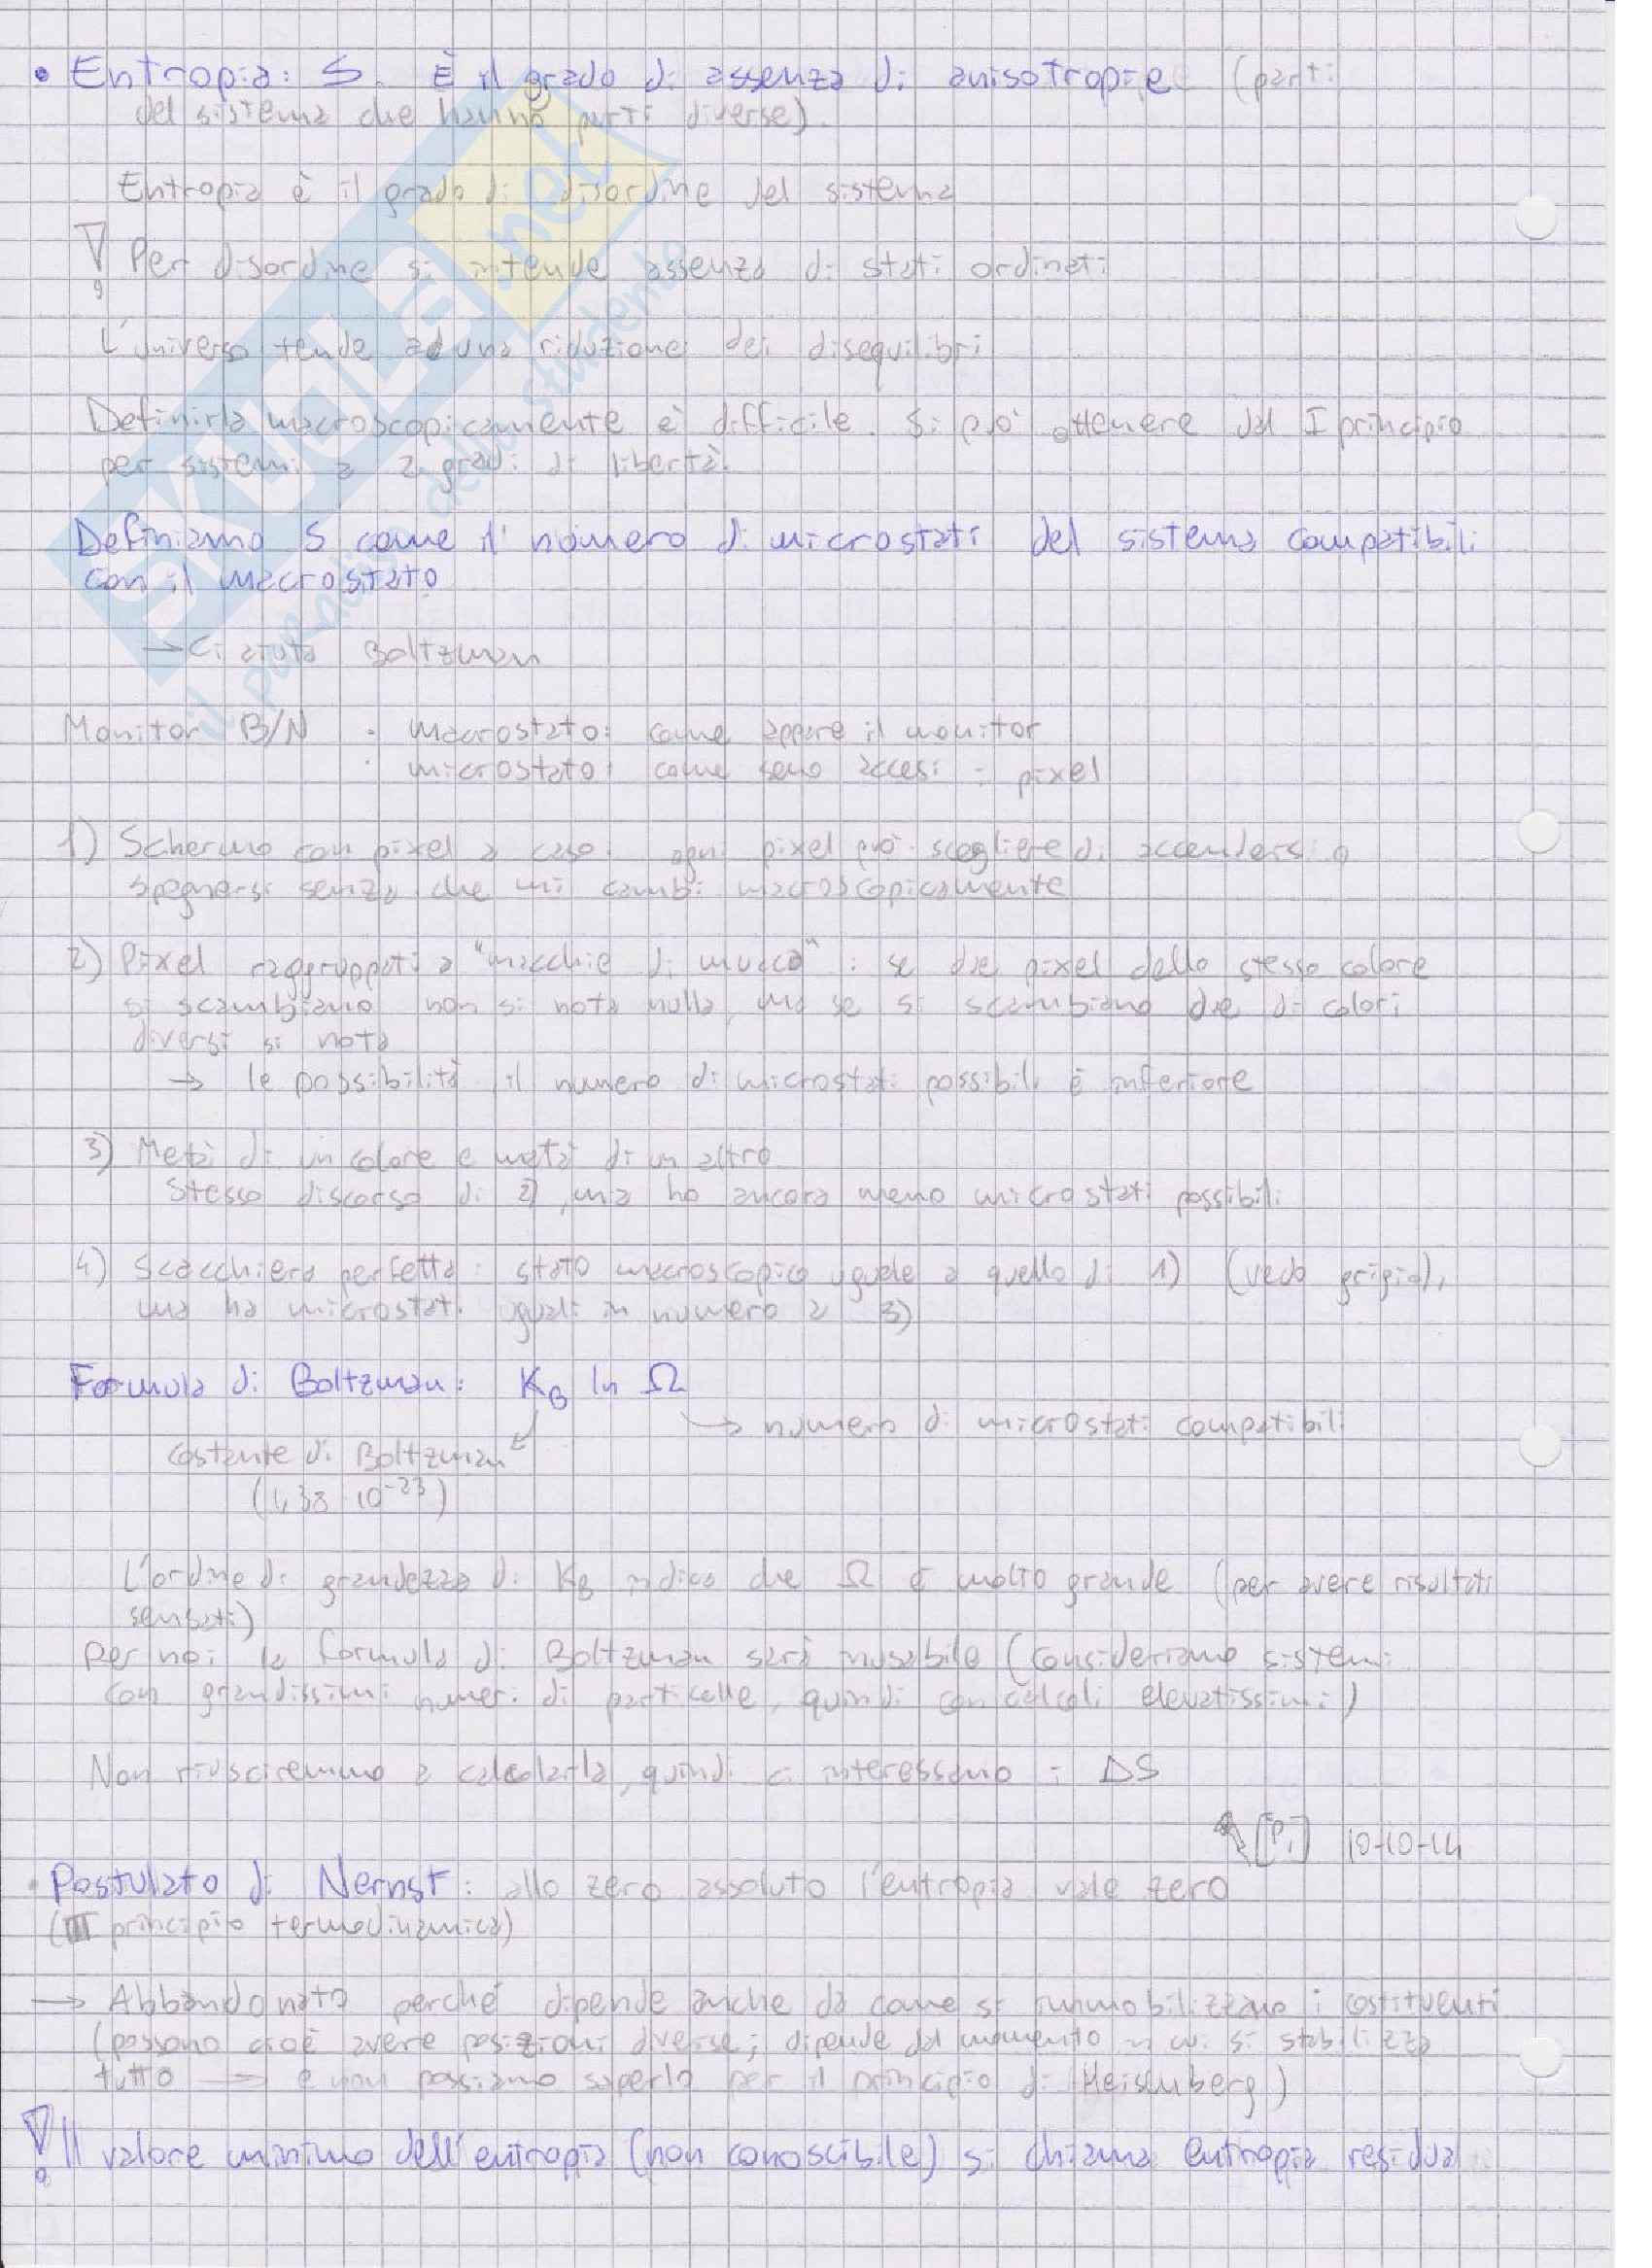 • Entropia: S. È il grado di assenza di anisotropie (parti
del sistema che hanno parti diverse).
Entropia è il grado di disordine del sistema
! Per disordine si intende assenza di stati ordinati
L'universo tende ad una riduzione dei disequilibri
Definirla macroscopicamente è difficile. Si può ottenere dal I principio
per sistemi a 2 gradi di libertà.
Definiamo S come il numero di microstati del sistema compatibili
con il macrostato
→ Ci aiuta Boltzman
Monitor B/N : macrostato: come appare il monitor
microstato: come sono accesi i pixel
1) Schermo con pixel a caso: ogni pixel può scegliere di accendersi o
spegnersi senza che mi cambi macroscopicamente
2) Pixel raggruppati a "macchie di mucca": se due pixel dello stesso colore
si scambiano non si nota nulla, ma se si scambiano due di colori
diversi si nota
→ le possibilità il numero di microstati possibili è inferiore
3) Metà di un colore e metà di un altro
Stesso discorso di 2), ma ho ancora meno microstati possibili
4) Scacchiera perfetta: stato macroscopico uguale a quello di 1) (vedo grigio),
ma ha microstati uguali in numero a 3)
Formula di Boltzman: K_B ln Ω
→ numero di microstati compatibili
costante di Boltzman
(1,38 · 10⁻²³)
L'ordine di grandezza di K_B indica che Ω è molto grande (per avere risultati
sensati)
Per noi la formula di Boltzman sarà inusabile (consideriamo sistemi
con grandissimi numeri di particelle, quindi con calcoli elevatissimi)
Non riusciremmo a calcolarla, quindi ci interessano i ΔS
[P.] 10-10-14
• Postulato di Nernst: allo zero assoluto l'entropia vale zero
(III principio termodinamica)
→ Abbandonato perché dipende anche da come si immobilizzano i costituenti
(possono cioè avere posizioni diverse; dipende dal momento in cui si stabilizza
tutto → e non possiamo saperlo per il principio di Heisenberg)
! Il valore minimo dell'entropia (non conoscibile) si chiama entropia residua
SKUOLA.net
il paradiso dello studente